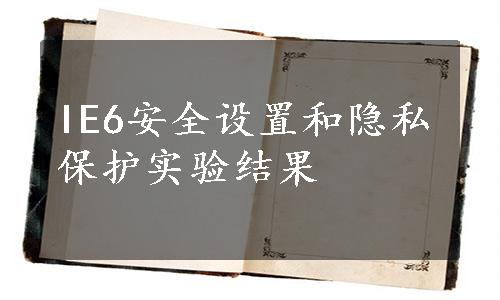 IE6安全设置和隐私
保护实验结果